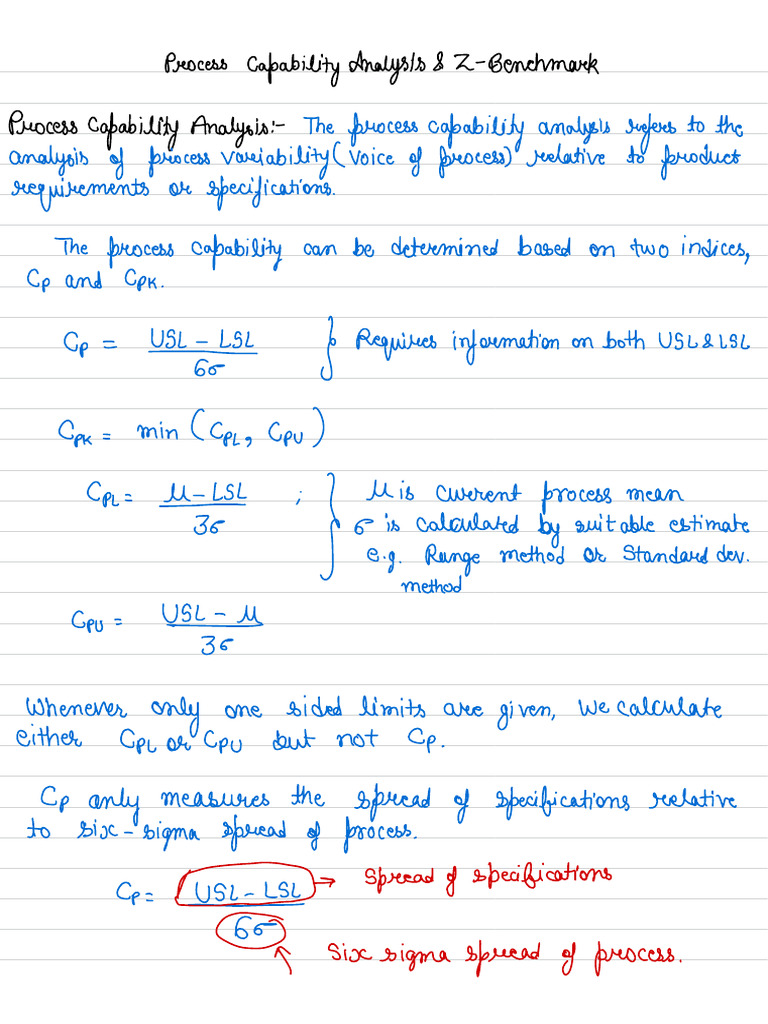 Process Capability Analysis & Z-Benchmark
Process Capability Analysis:- The process capability analysis refers to the
analysis of process variability (voice of process) relative to product
requirements or specifications.
The process capability can be determined based on two indices,
Cp and CPK.
Cp = (USL - LSL) / 6σ } Requires information on both USL & LSL
CPK = min (CPL, CPU)
CPL = (μ - LSL) / 3σ ; } μ is current process mean
σ is calculated by suitable estimate
e.g. Range method or Standard dev.
method
CPU = (USL - μ) / 3σ
Whenever only one sided limits are given, we calculate
either CPL or CPU but not Cp.
Cp only measures the spread of specifications relative
to six-sigma spread of process.
Cp = (USL - LSL) / 6σ → Spread of specifications
Six sigma spread of process.